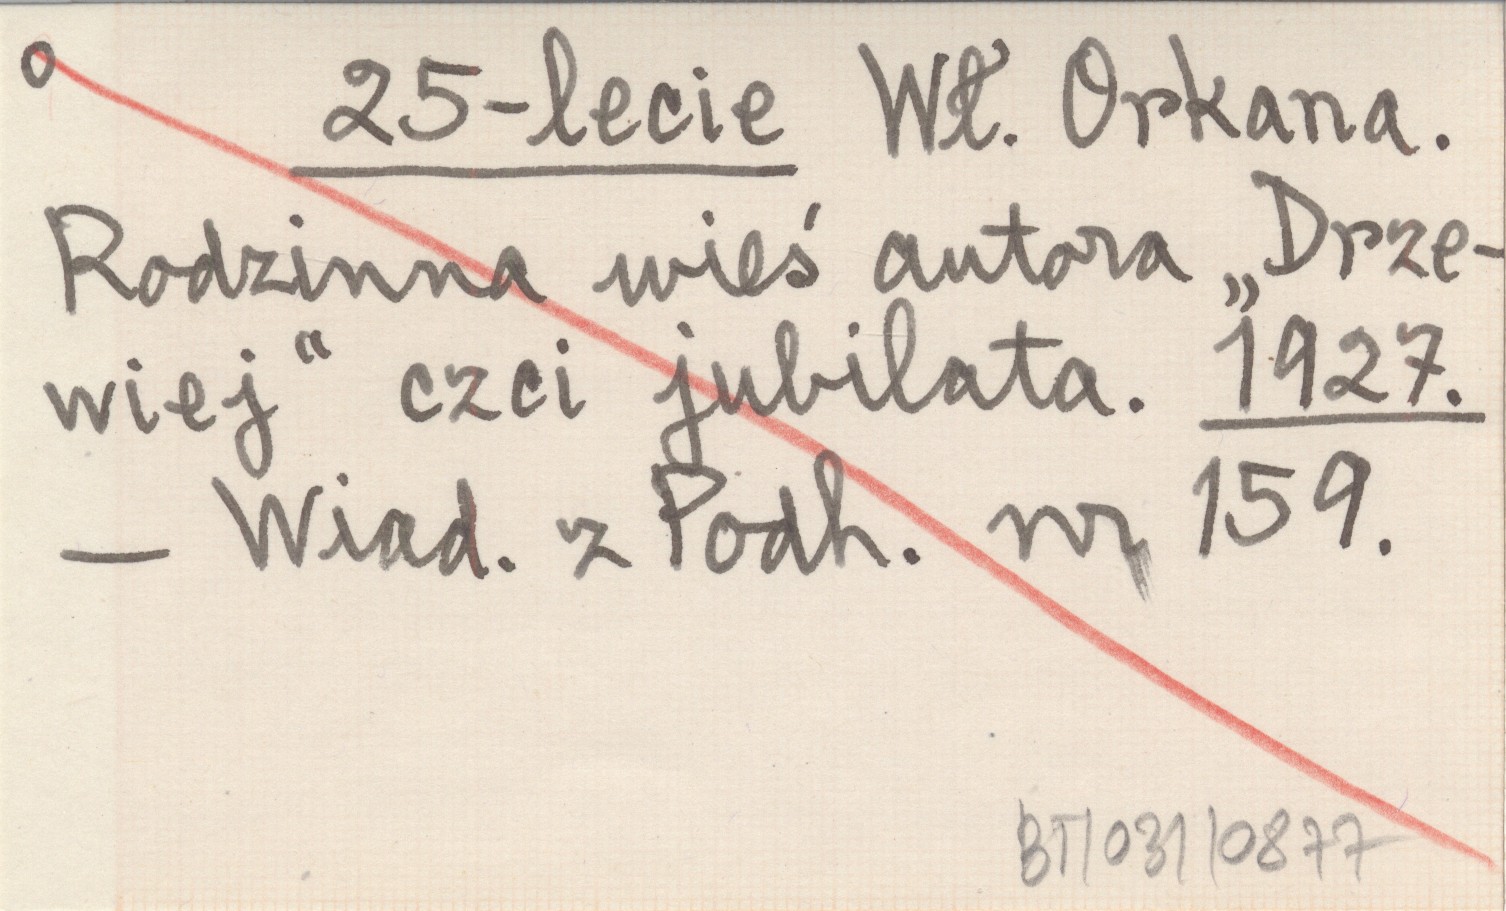 o 25-lecie Wł. Orkana.
Rodzinna wieś autora „Drze-
wiej“ czci jubilata. 1927.
— Wiad. z Podh. nr 159.
BT/031/0877